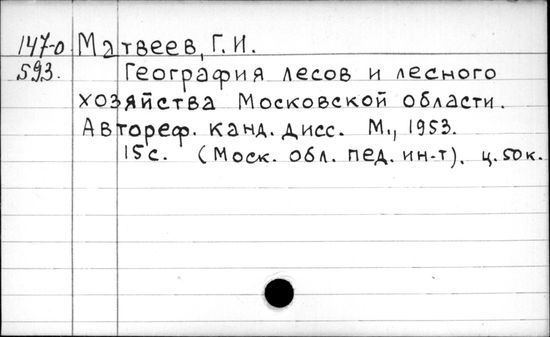 147-0 Матвеев, Г.И.
593. География лесов и лесного
хозяйства Московской области.
Автореф. канд. дисс. М., 1953.
15 с. (Моск. обл. пед. ин-т). ц. 50к.